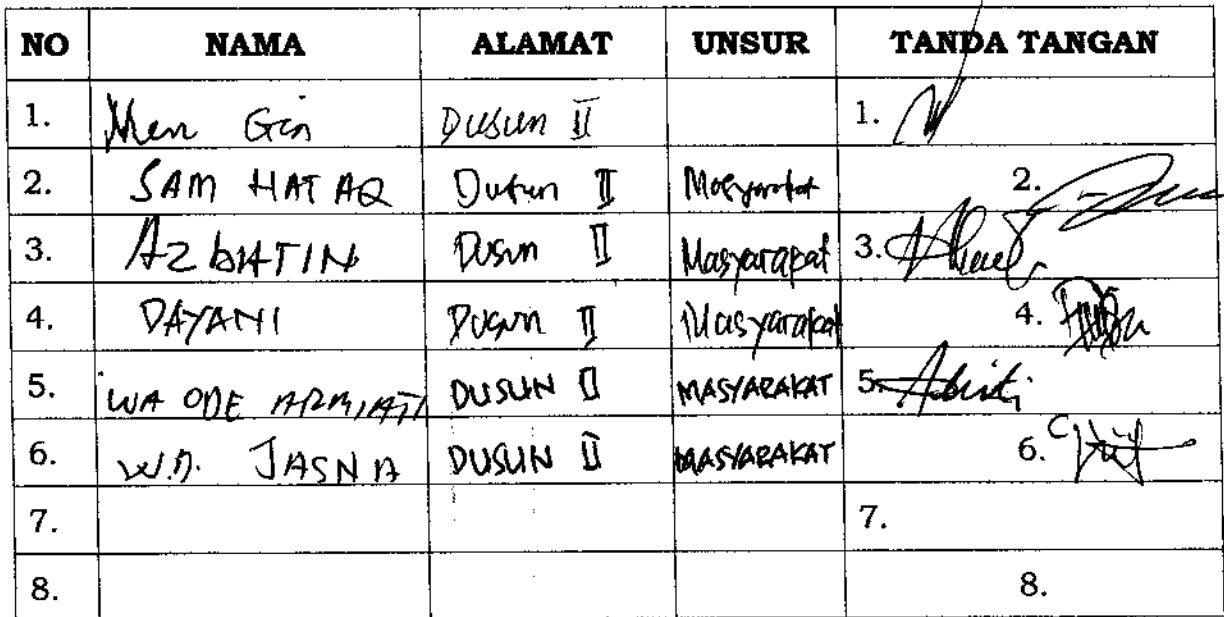 NO NAMA ALAMAT UNSUR TANDA TANGAN
1. Men Gin Dusun II 1.
2. SAM HATAQ Dusun II Masyarakat 2.
3. Dusun II Masyarakat 3.
4. DAYANI Dusun II Masyarakat 4.
5. WA ODE ARMIATI DUSUN II MASYARAKAT 5.
6. W.D. JASNA DUSUN II MASYARAKAT 6.
7. 7.
8. 8.